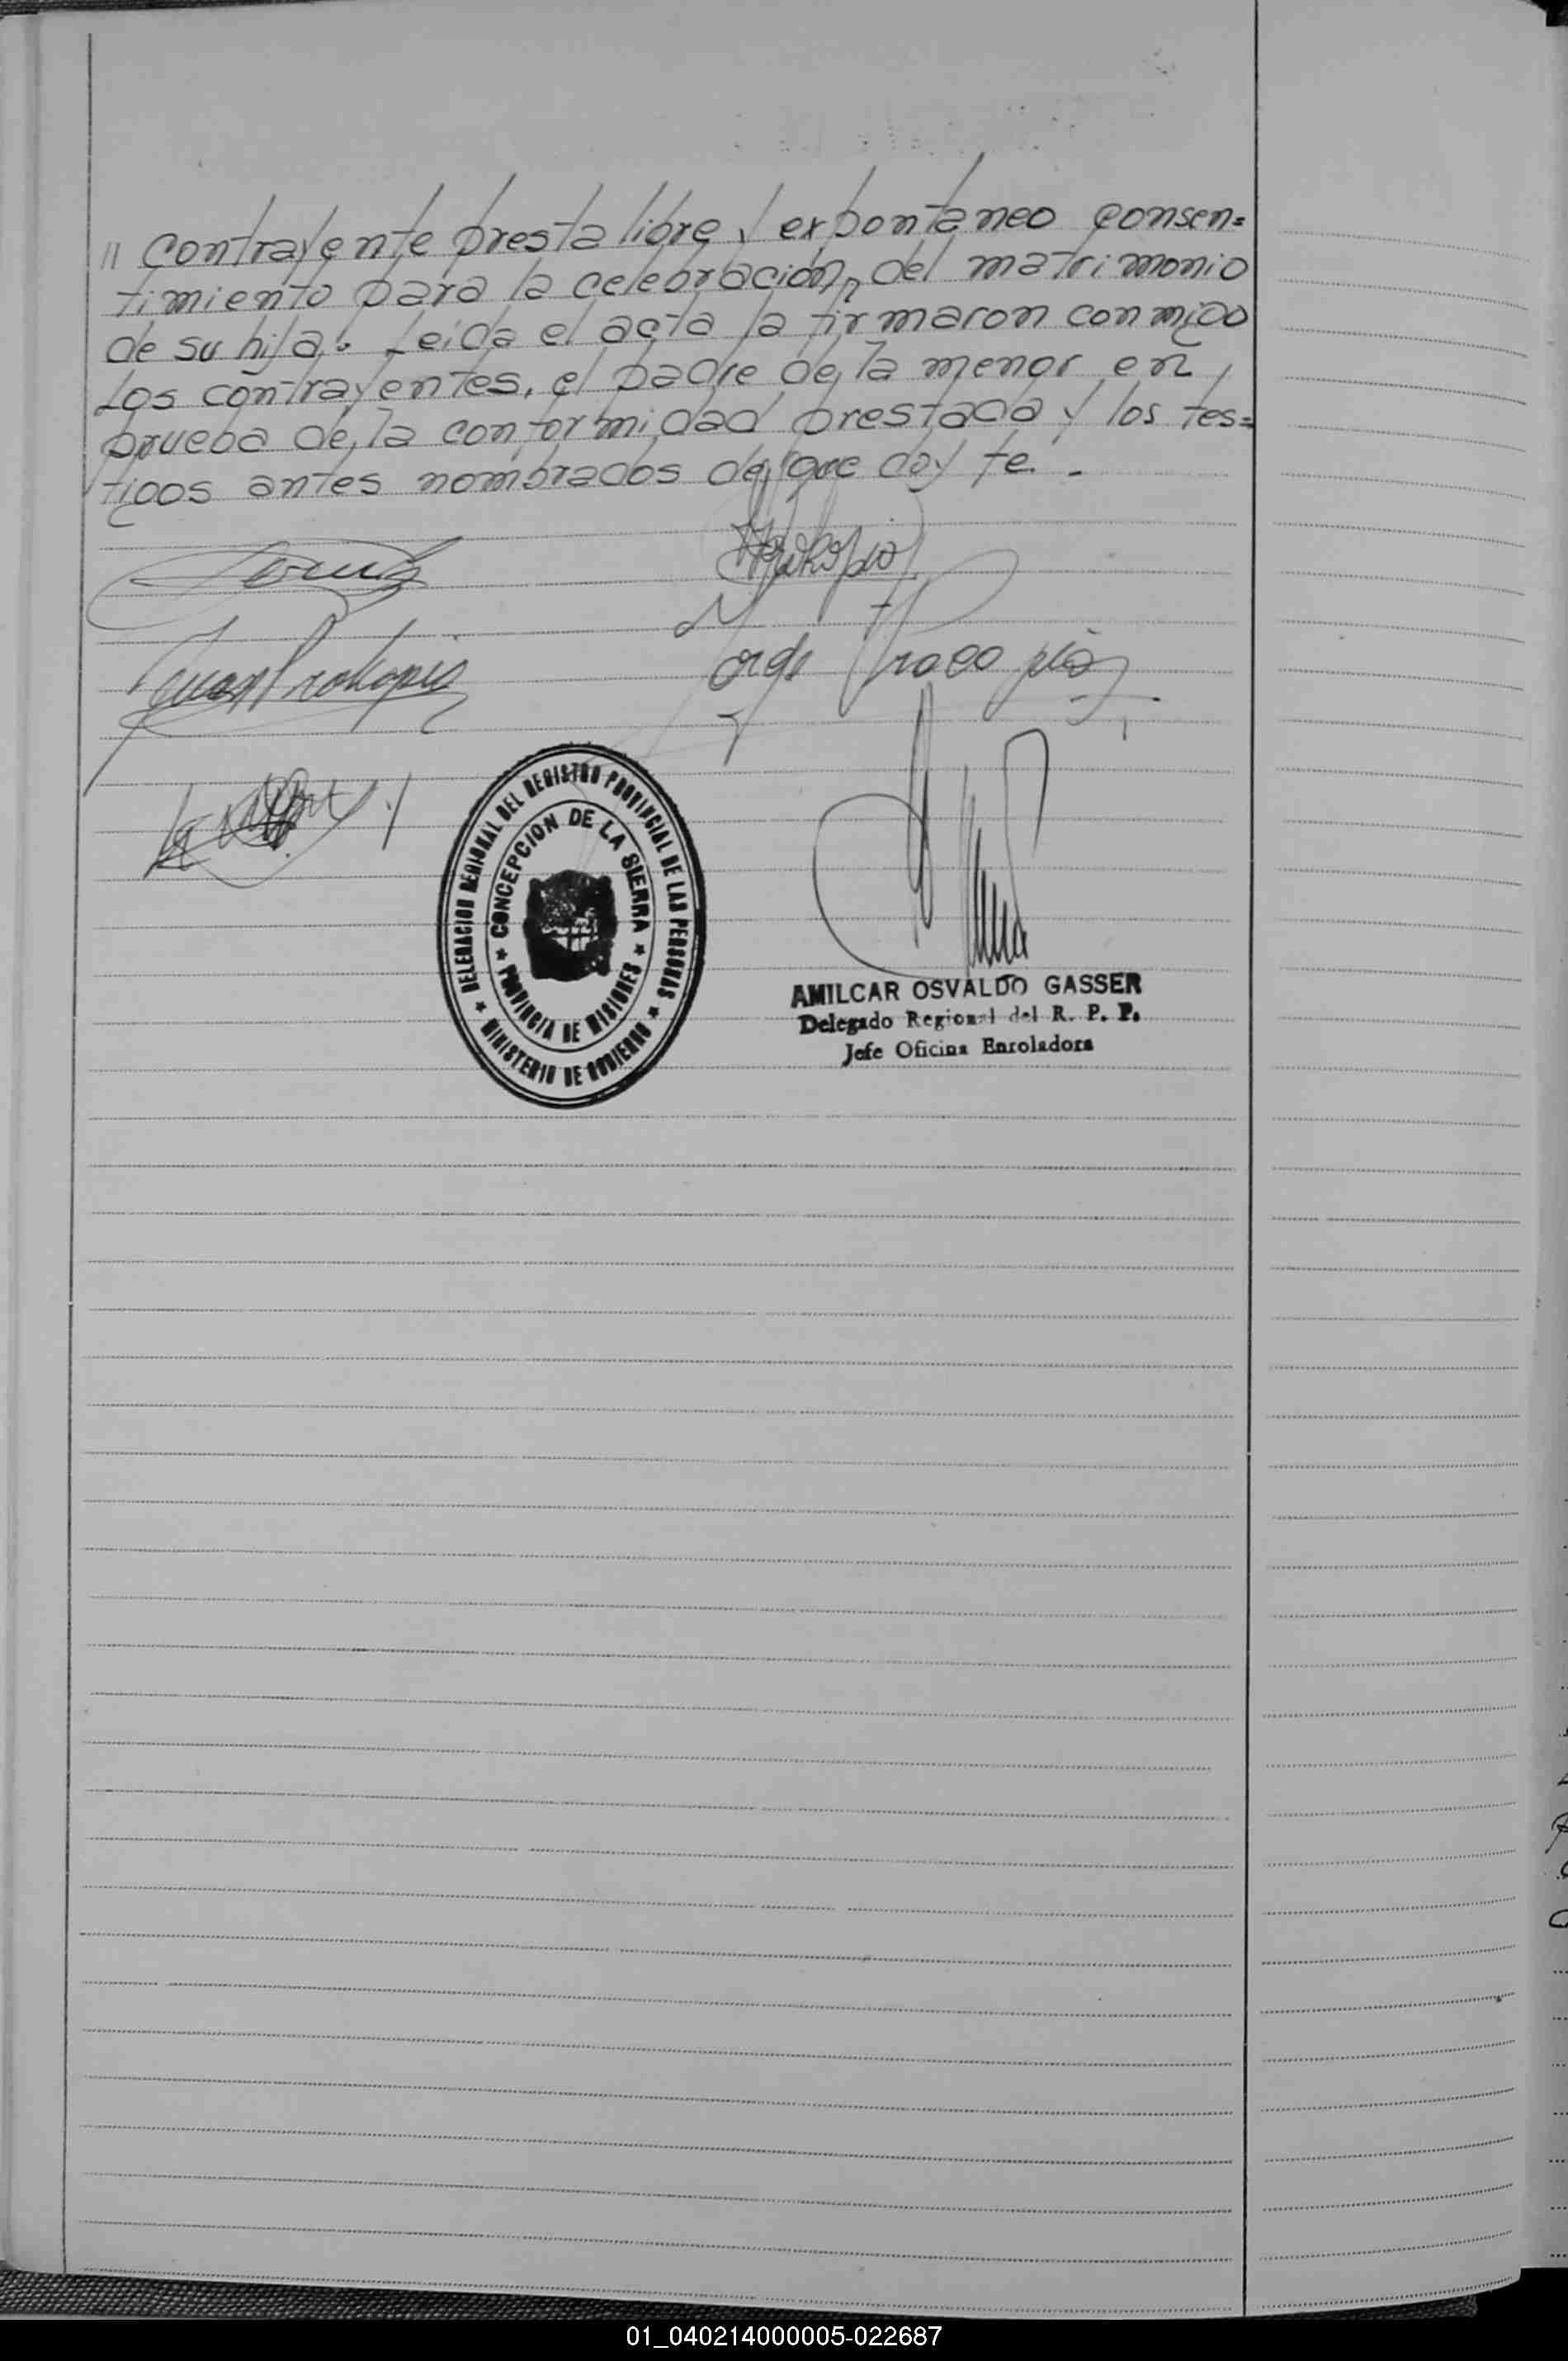 // contrayente presta libre y expontaneo consen=
timiento para la celebración del matrimonio
de su hija. Leída el acta la firmaron conmigo
los contrayentes, el padre de la menor en
prueba de la conformidad prestada y los tes=
tigos antes nombrados de que doy fe. -
Prokopio
Juan Prokopio
Jorge Procopio
DELEGACION REGIONAL DEL REGISTRO PROVINCIAL DE LAS PERSONAS
★ MINISTERIO DE GOBIERNO ★
CONCEPCION DE LA SIERRA
★ PROVINCIA DE MISIONES ★
AMILCAR OSVALDO GASSER
Delegado Regional del R. P. P.
Jefe Oficina Enroladora
01_040214000005-022687